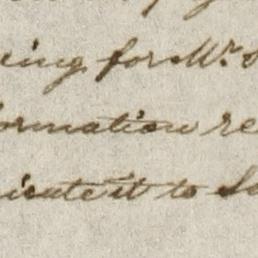 ing for Mr. S
ormation re
icate it to So